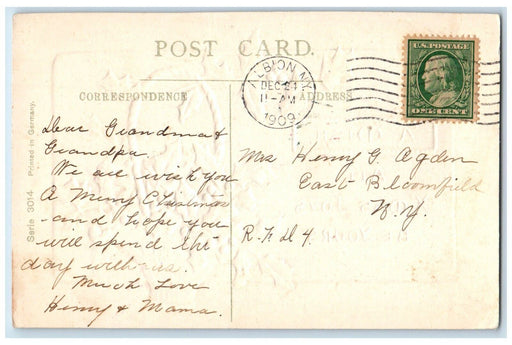 POST CARD.
ALBION N.Y.
DEC 21
11-AM
1909
U.S. POSTAGE
ONE CENT
CORRESPONDENCE
ADDRESS
Dear Grandma &
Grandpa
We all wish you
A Merry Christmas
and hope you
will spend the
day with us.
Much Love
Henry & Mama.
Mrs Henry G. Ogden
East Bloomfield
N.Y.
R.F.D. 4
Serie 3014 Printed in Germany.